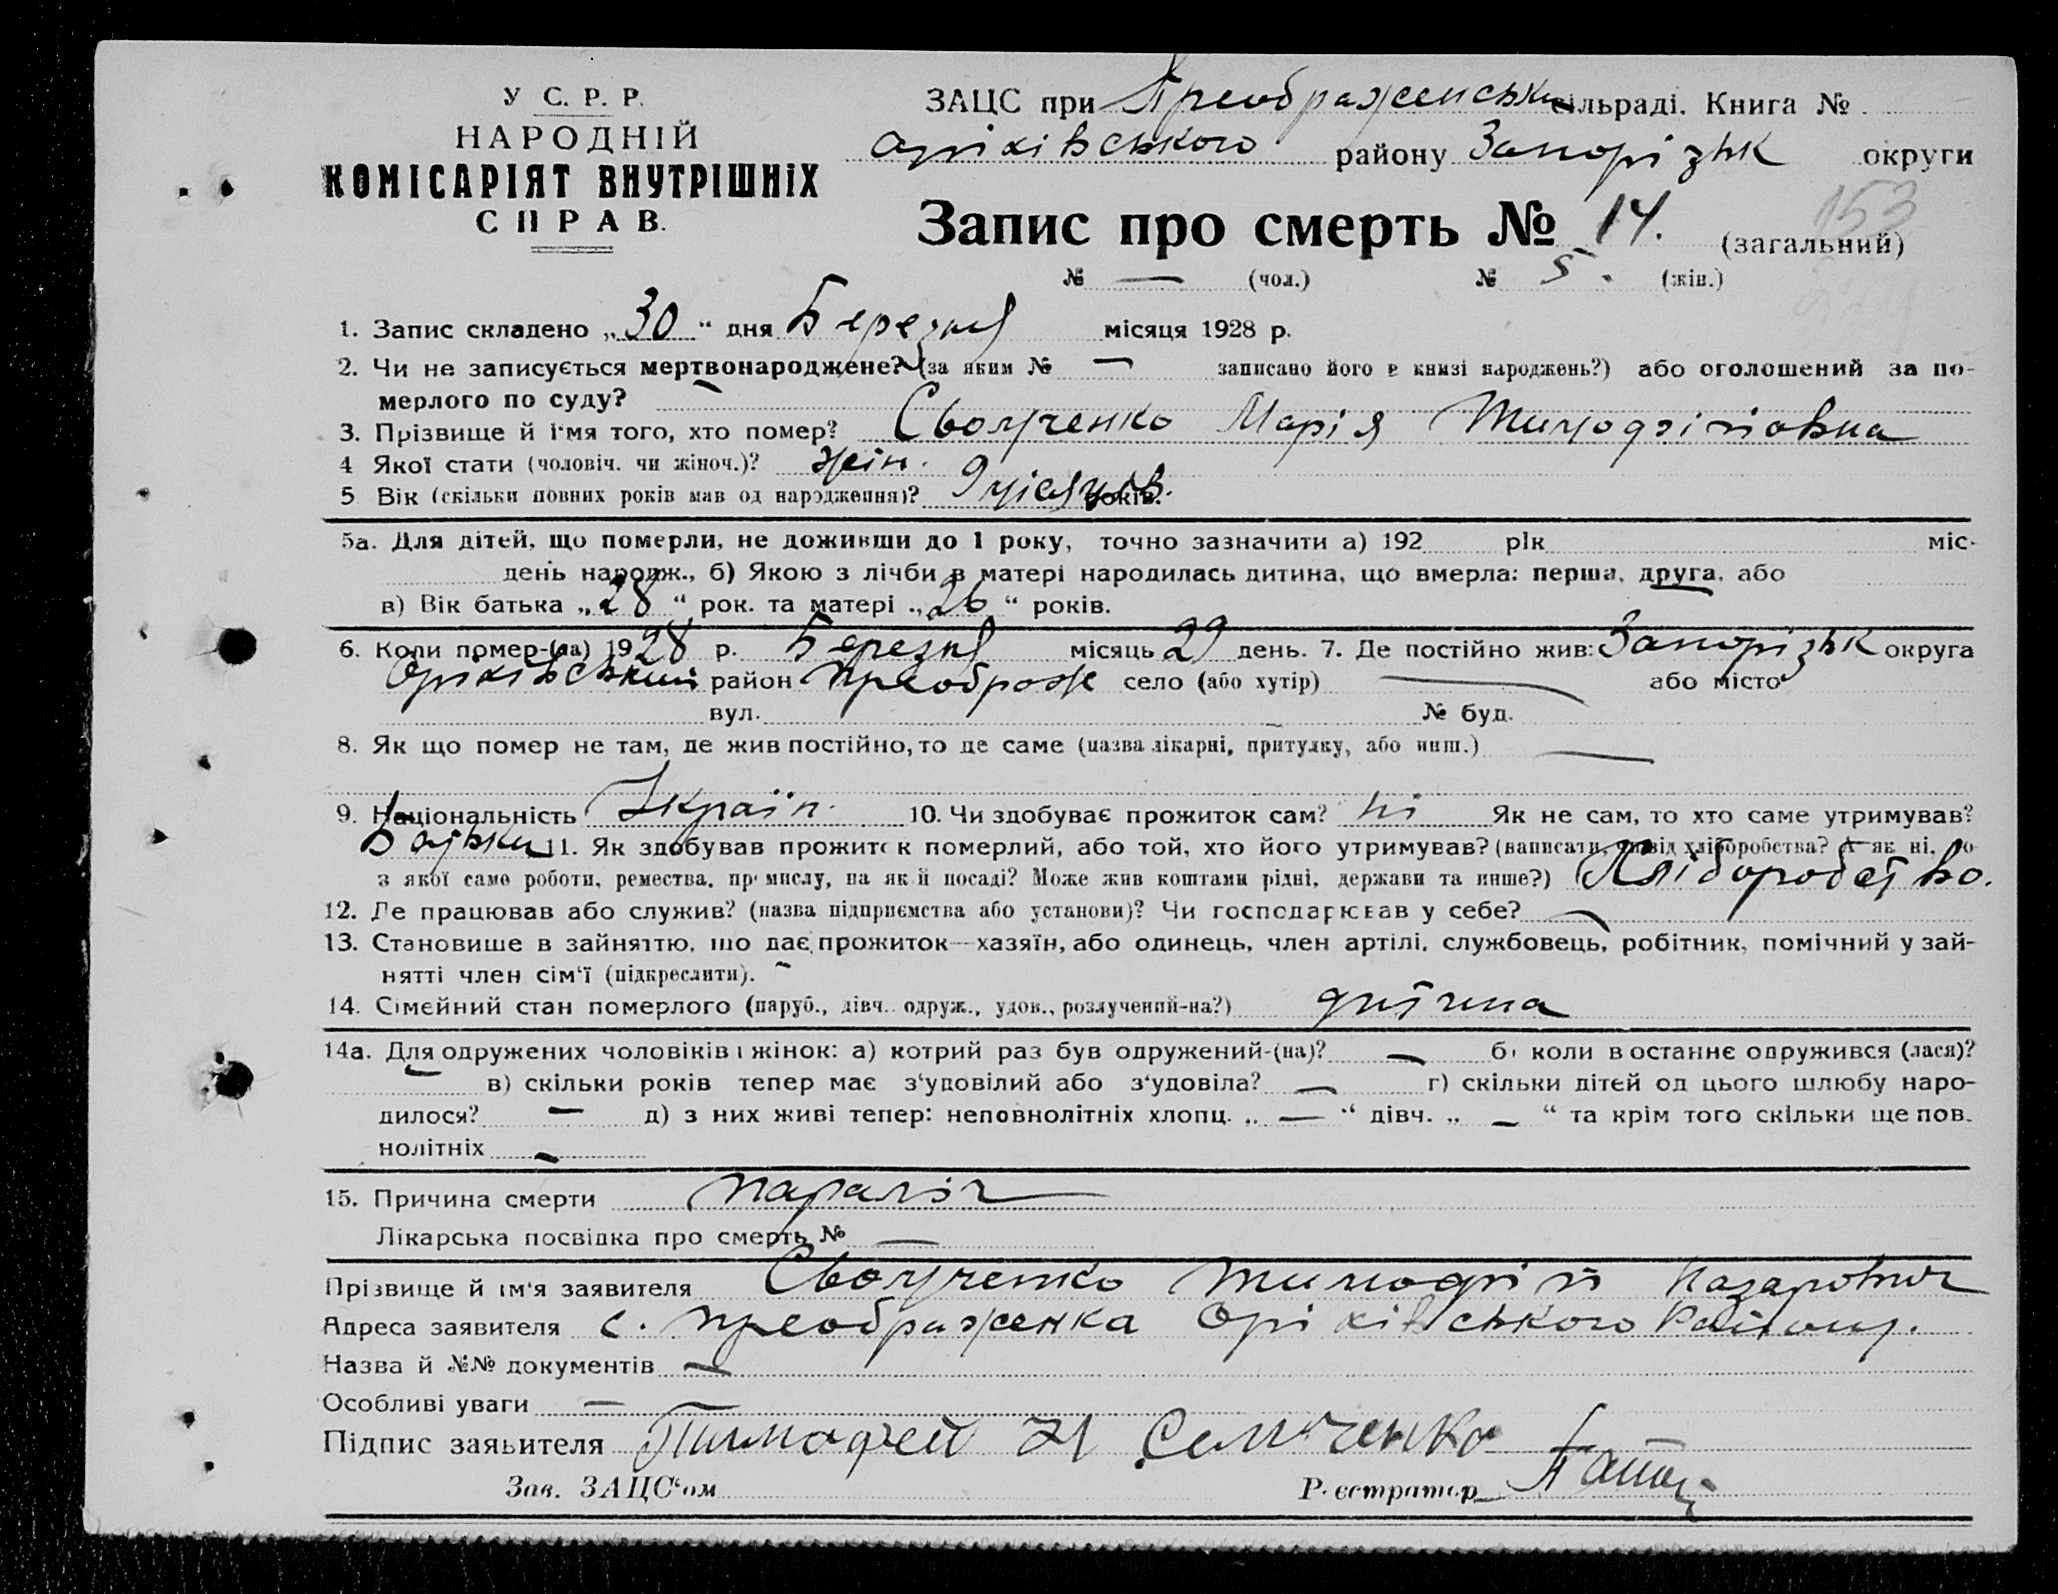 У С. Р. Р.
НАРОДНІЙ
КОМІСАРІЯТ ВНУТРІШНіХ
СПРАВ.
ЗАЦС при Преображенськи сільраді. Книга №
Оріхівського району Запорізьк округи
Запис про смерть № 14. (загальний)
153
№ — (чол.) № 5. (жін.)
1. Запис складено „30“ дня Березня місяця 1928 р.
2. Чи не записується мертвонароджене? (за яким № — записано його в книзі народжень?) або оголошений за по-
мерлого по суду? —
3. Прізвище й ім'я того, хто помер? Марія Тимофіїовна
4 Якої стати (чоловіч. чи жіноч.)? жін.
5 Вік (скільки повних років мав од народження)? 9 місяців. років.
5а. Для дітей, що померли, не доживши до 1 року, точно зазначити а) 192 рік міс-
день народж., б) Якою з лічби в матері народилась дитина, що вмерла: перша, друга, або
в) Вік батька „28“ рок. та матері „26“ років.
6. Коли помер-(ла) 1928 р. Березня місяць 29 день. 7. Де постійно жив: Запорізьк округа
Оріхівський район Преображ село (або хутір) — або місто
вул. № буд.
8. Як що помер не там, де жив постійно, то де саме (назва лікарні, притулку, або инш.) —
9. Національність Україн. 10. Чи здобуває прожиток сам? ні Як не сам, то хто саме утримував?
Батьки 11. Як здобував прожиток померлий, або той, хто його утримував? (написати, чи від хліборобства? А як ні, то
з якої саме роботи, ремества, промислу, на якій посаді? Може жив коштами рідні, держави та инше?) Хліборобство.
12. Де працював або служив? (назва підприємства або установи)? Чи господарював у себе? —
13. Становище в зайняттю, що дає прожиток—хазяїн, або одинець, член артілі, службовець, робітник, помічний у зай-
нятті член сім'ї (підкреслити). —
14. Сімейний стан померлого (паруб., дівч. одруж., удов., розлучений-на?) дитина
14а. Для одружених чоловіків і жінок: а) котрий раз був одружений-(на)? — б) коли в останнє одружився (лася)?
— в) скільки років тепер має з'удовілий або з'удовіла? — г) скільки дітей од цього шлюбу наро-
дилося? — д) з них живі тепер: неповнолітніх хлопц. „—“ дівч. „—“ та крім того скільки ще пов.
нолітніх —
15. Причина смерти параліч
Лікарська посвідка про смерть № —
Прізвище й ім'я заявителя Тимофій Назарович
Адреса заявителя с. Преображенка Оріхівського Району.
Назва й №№ документів —
Особливі уваги —
Підпис заявителя Тимофей Н
Зав. ЗАЦС'ом Реєстратор